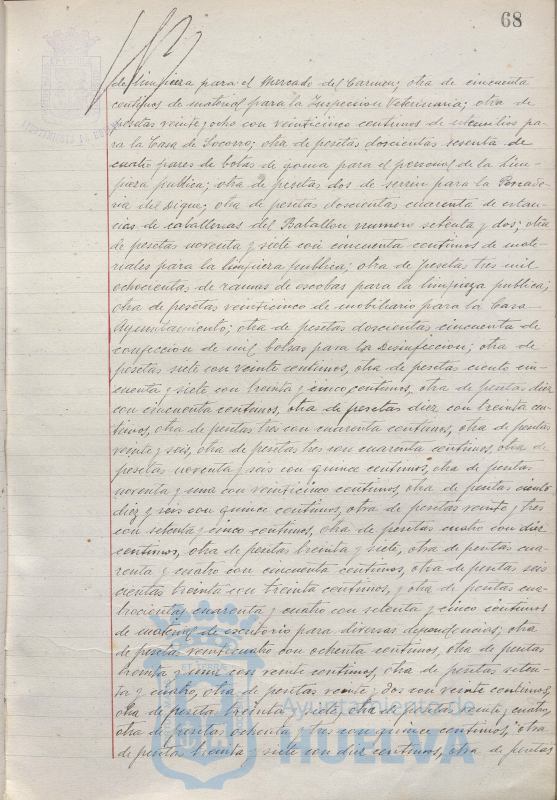 68
de limpieza para el Mercado del Carmen; otra de cincuenta
centimos de material para la Inspeccion Veterinaria; otra de
pesetas veinte y ocho con veinticinco centimos de utensilios pa-
ra la Casa de Socorro; otra de pesetas doscientas sesenta de
cuatro pares de botas de goma para el personal de la lim-
pieza publica; otra de pesetas dos de serrin para la Pescade-
ria del Dique; otra de pesetas doscientas cuarenta de estan-
cias de caballerias del Batallon numero setenta y dos; otra
de pesetas noventa y siete con cincuenta centimos de mate-
riales para la limpieza publica; otra de pesetas tres mil
ochocientas de ramas de escobas para la limpieza publica;
otra de pesetas veinticinco de mobiliario para la Casa
Ayuntamiento; otra de pesetas doscientas cincuenta de
confeccion de mil bolsas para la Desinfeccion; otra de
pesetas siete con veinte centimos, otra de pesetas ciento cin-
cuenta y siete con treinta y cinco centimos, otra de pesetas diez
con cincuenta centimos, otra de pesetas diez con treinta cen-
timos, otra de pesetas tres con cuarenta centimos, otra de pesetas
veinte y seis, otra de pesetas tres con cuarenta centimos, otra de
pesetas noventa y seis con quince centimos, otra de pesetas
noventa y una con veinticinco centimos, otra de pesetas ciento
diez y seis con quince centimos, otra de pesetas veinte y tres
con setenta y cinco centimos, otra de pesetas cuatro con diez
centimos, otra de pesetas treinta y siete, otra de pesetas cua-
renta y cuatro con cincuenta centimos, otra de pesetas seis
cientas treinta con treinta centimos, y otra de pesetas cua-
trocientas cuarenta y cuatro con setenta y cinco centimos
de material de escritorio para diversas dependencias; otra
de pesetas veinticuatro con ochenta centimos, otra de pesetas
treinta y una con veinte centimos, otra de pesetas seten-
ta y cuatro, otra de pesetas veinte y dos con veinte centimos,
otra de pesetas treinta y siete, otra de pesetas veinte y cuatro,
otra de pesetas ochenta y tres con quince centimos, otra
de pesetas treinta y siete con diez centimos, otra de pesetas
Ayuntamiento de
HUELVA